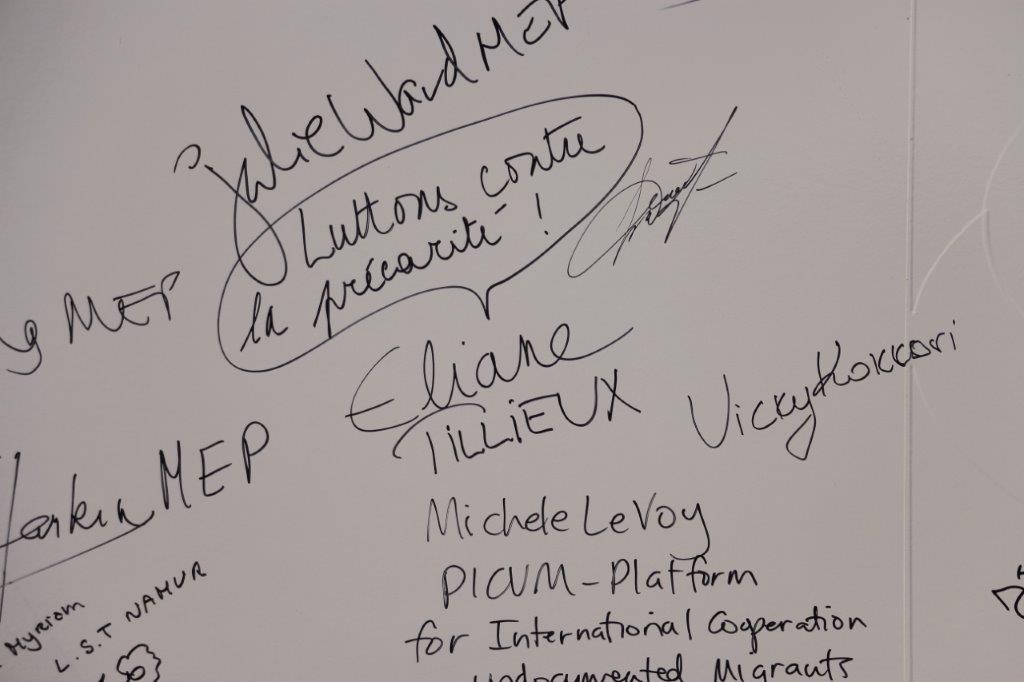 Julie Ward MEP
Luttons contre
la précarité !
MEP
Eliane
TILLIEUX
Vicky Kokkori
Harkin MEP
Michele LeVoy
PICUM - Platform
for International Cooperation
undocumented Migrants
Myriam
L.S.T NAMUR